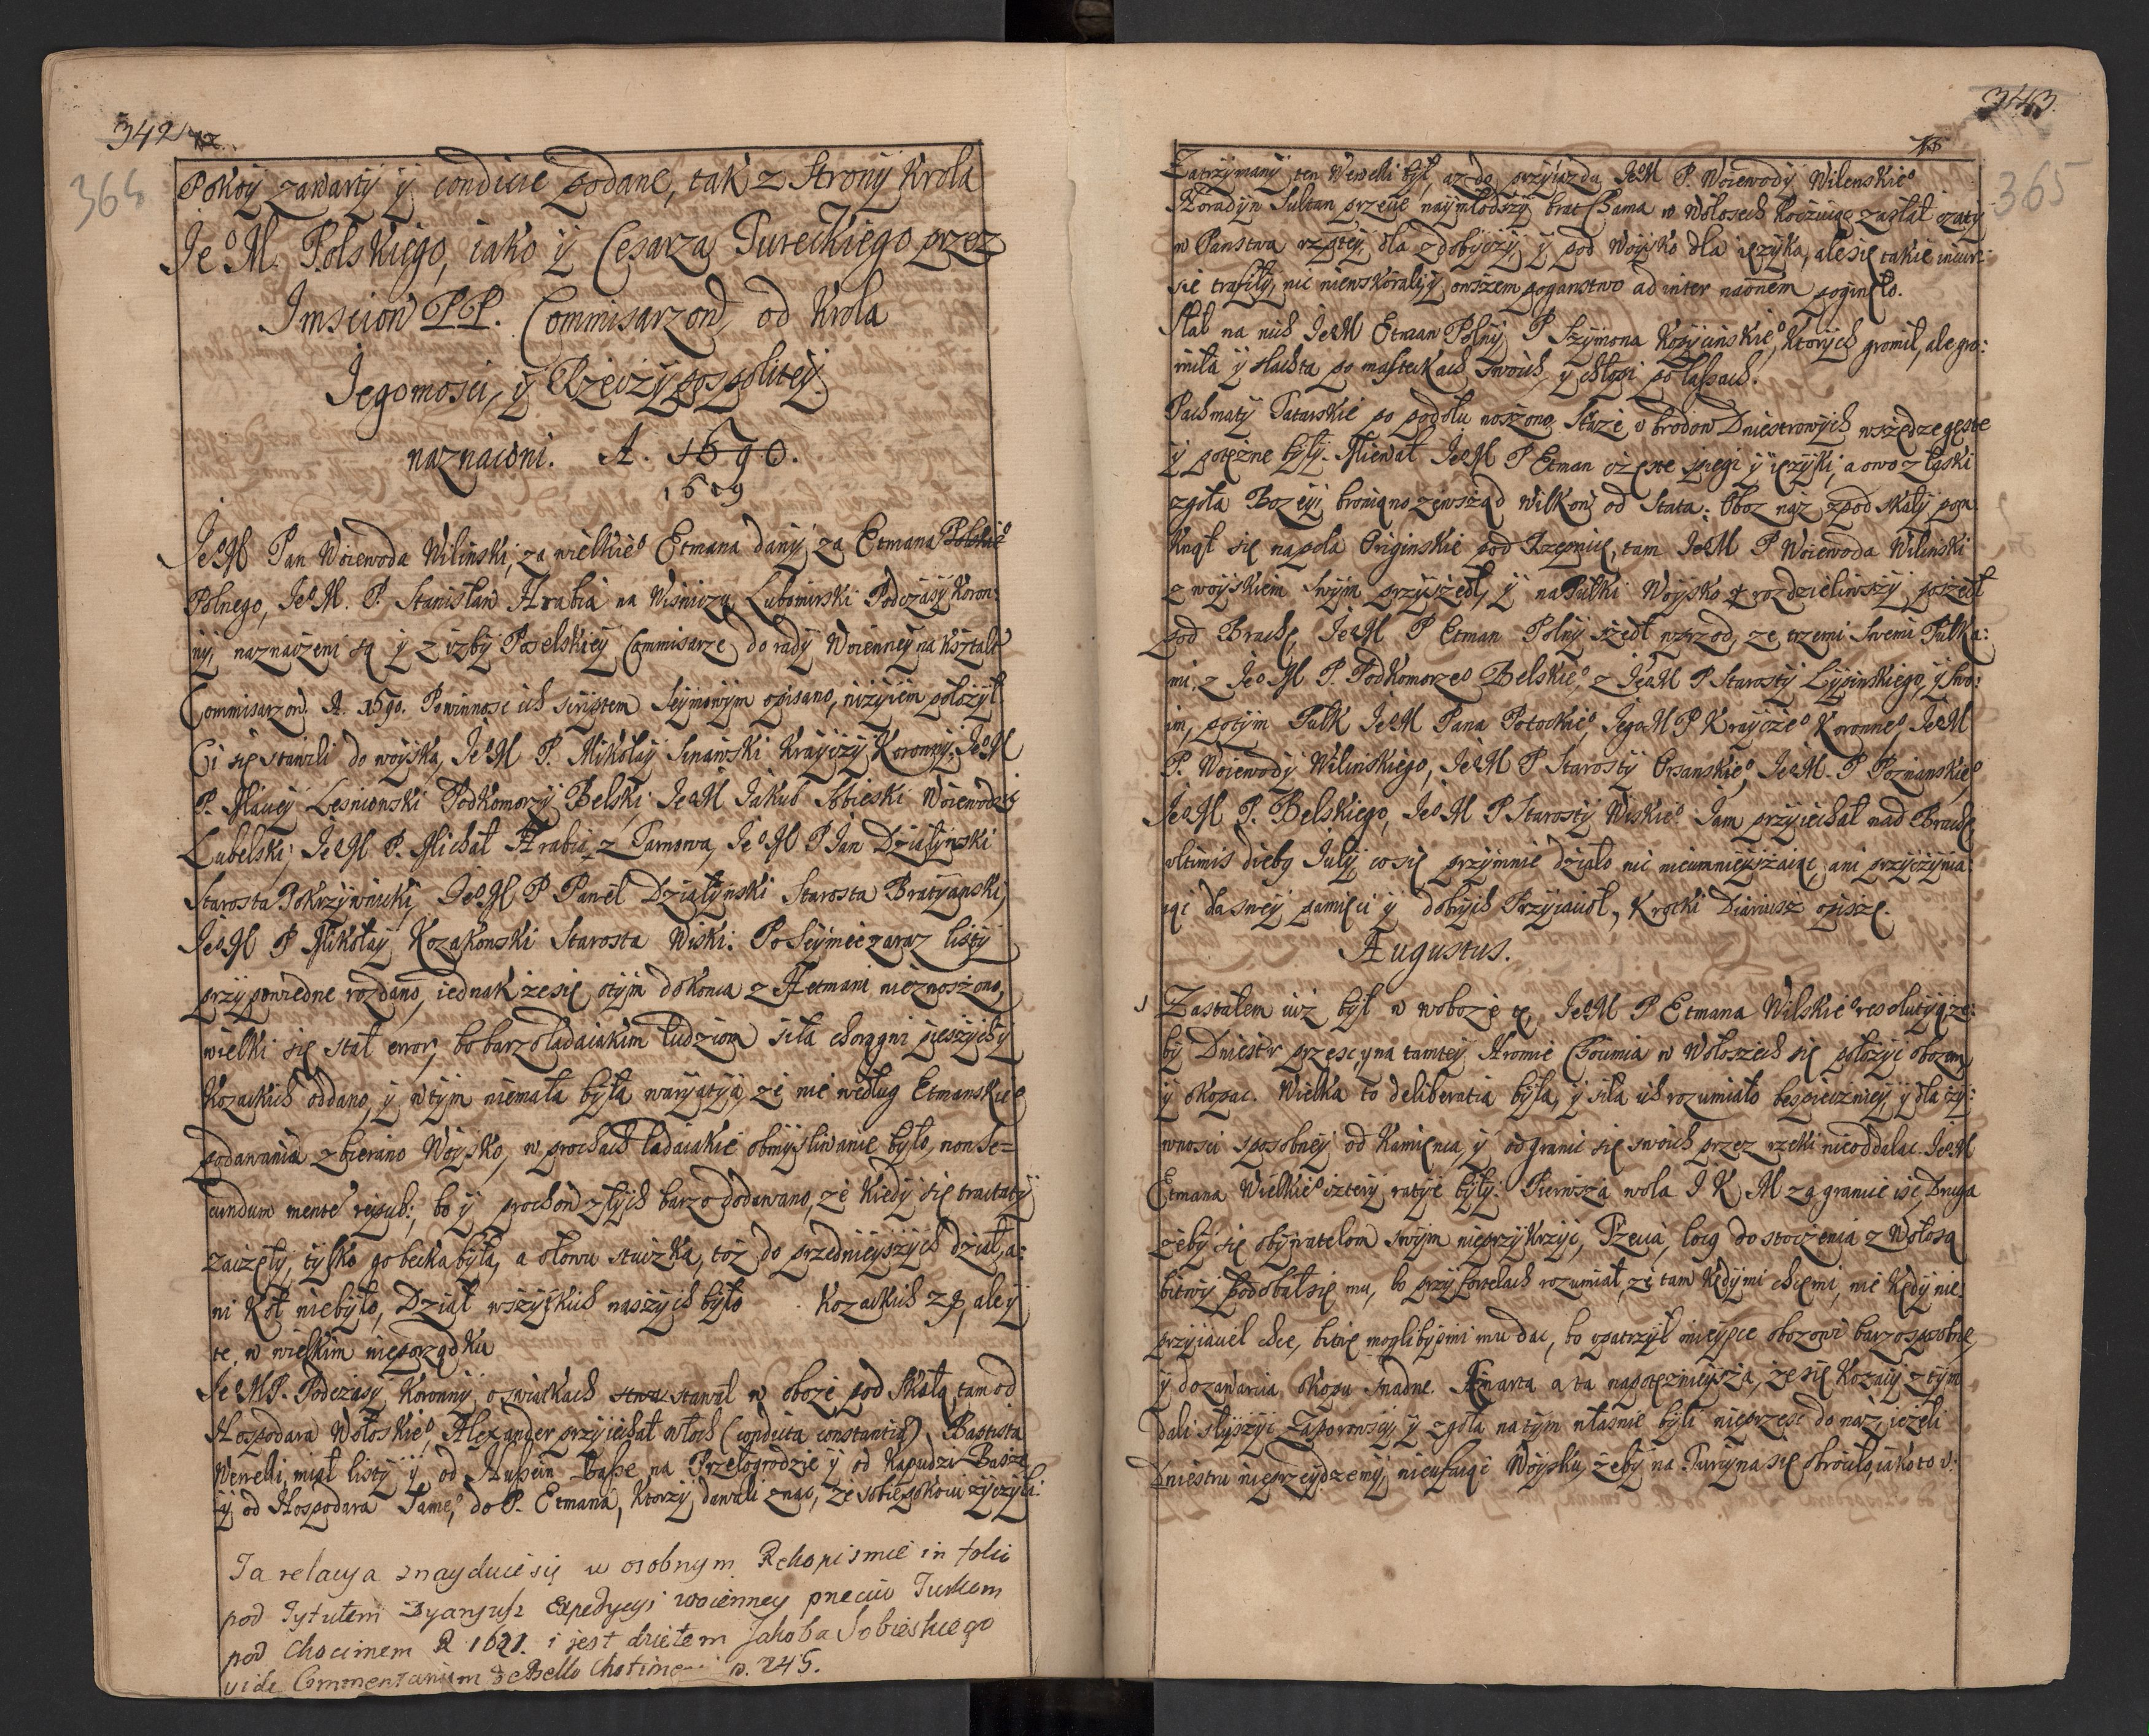 342
364
Pokoy zawarty y condicie podane, tak z Strony Krola
Je⁰M. Polskiego, iako y Cesarza Tureckiego przez
Jmsciow PP. Commisarzow, od Krola
Jegomosci, y Rzeczypospolitey
naznaczoni. A. 1690.
1609
Je⁰M Pan Woiewoda Wilinski, za wielkie⁰ Etmana dany, za Etmana Polskie⁰
Polnego, Je⁰M. P. Stanisław Hrabia na Wisniczu Lubomirski Podczasy Koron:
ny, naznaczeni są y z izby Poselskiey Commisarze do rady Woienney na kształt
Commisarzow A. 1590. Powinnosc ich scriptem Seymowym opisano, niżyiem położył
Ci się stawili do woyska, Je⁰M P. Mikołay Sinawski Krayczy Koronny, Je⁰M
P. Maciey Lesniowski Podkomorzy Belski, Je⁰M Jakub Sobieski Woiewodzic
Lubelski, Je⁰M P. Michał Hrabia z Tarnowa, Je⁰M P Jan Działynski
Starosta Pokrzywnicki, Je⁰M P Paweł Działynski Starosta Bratyanski,
Je⁰M P Mikołay Kozakowski Starosta Wiski. Po Seymie zaraz listy
przypowiedne rozdano, iednak że się o tym do konca z Hetmani nieznoszono,
wielki się stał error, bo barzo ladaiakim ludziom siła chorągni pieszych y
Kozackich oddano, y w tym niemała była waryatya, że nie według Etmanskie⁰
podawania zbierano Woysko, w prochach ladaiakie obmysliwanie było, non se=
cundum mente reipub:, bo y prochow złych barzo dodawano, że kiedy się tractaty
zaczęły, tylko go beczka była, a ołowu sztuczka, toż do przednieyszych dział, a:
ni kół niebyło, Dział wszytkich naszych było . Kozackich 28, ale y
te, w wielkim nieporządku
Je⁰M P. Podczasy Koronny, o swiątkach stawał w obozie pod Skałą, tam od
Hospodara Wołoskie⁰, Alexander przyiechał włoch (conducta constantia) Baptista
Wewelli, miał listy y od Hussein Basse, na Przełogrodzie y od Kapudzi Basze,
y od Hospodara Same⁰, do P. Etmana, Ktorzy dawali znac, że sobie pokoiu życzyli.
Ta relacya znayduie się w osobnym Rękopismie in folio
pod Tytułem Dyaryusz Expedycyi woienney przeciw Turkom
pod Chocimem R 1621. i jest dziełem Jakoba Sobieskiego
vide Commentarium de Bello Chotinen. p. 245.
343.
365
Zatrzymany ten Wewelli był, aż do przyiazdu Je⁰M P. Woiewody Wilenskie⁰
Horadyn Sultan przecie naymłodszy brat Chama w Wołoszech koczuiąc zasłał czaty
w Panstwa rzptey, dla zdobyczy y pod Woysko dla ięzyka, ale się takie incur:
sie trafiły, nic niewskorali, y owszem poganstwo ad inter naonem poginęło.
Słał na nich Je⁰M Etman Polny P Szymona Kopycinskie⁰, Ktorych gromił, ale gro:
miła y slachta po miasteckach swoich, y chłopi po lassach.
Pachmaty Tatarskie po podolu noszono, Straże v brodow Dniestrowych wszędze gęste
y potężne były. Miewał Je⁰M P Etman częste spiegi y ięzyki, a owo z łaski
zgoła Bozeyi broniąno zewsząd wilkow od Stata: Oboz nąż zpod skały pom
knął się na pola Oryginskie pod Zzepnicę, tam Je⁰M P Woiewoda Wilinski
z woyskiem swym przyszedł, y na Pułki Woysko rozdzieliwszy poszedł
pod Brachę, Je⁰M P Etman Polny szedł wprzod, ze trzemi swemi Pułka:
mi, z Je⁰M P. Podkomorze⁰ Belskie⁰, z Je⁰M P Starosty Lypinskiego, y swo:
im, potym Pułk Je⁰M Pana Potockie⁰, Jego M P Krayczе⁰ Koronne⁰, Je⁰M
P. Woiewody Wilinskiego, Je⁰M P Starosty Orsanskie⁰, Je⁰M P Poznanskie⁰,
Je⁰M P. Belskiego, Je⁰M P Starosty Wiskie⁰. Jam przyiechał nad Brachę
vltimis dieby July, co się przymnie działo nic nieumnieyszaiąc, ani przyczynia:
iąc dla swey pamięci y dobrych Przyiacioł, Krotki Diariusz opiszę.
Augustus.
1 Zastałem iuż był w wobozie tę Je⁰M P Etmana Wilskie⁰ resolutyą, że:
by Dniestr przescy na tamtey stronie Chocimia w Wołoszech się położyc obozem
y okopac. Wielka to deliberatia była, y siła ich rozumiało bespieczniey, y dla ży:
wnosci sposobniey od Kamienca, y od granic się swoich przez rzeki nieoddalac. Je⁰M
Etmana Wielkie⁰ cztery ratye były. Pierwsza wola J K M za granicę isc, Druga
żeby się obywatelom swym nieprzykrzyc, Trzecia, locg do stoczenia z Wołosą
bitwy podobał się mu, bo przy fortelach rozumiał, że tam kędy mi chcemi, nie kędy nie:
przyiaciel chce, bitwę moglibysmi mu dac, bo opatrzył mieysce obozowi barzo sposobne,
y do zawarcia okopu snadne. Czwarta a ta napotężnieysza, że się Kozacy z tym
dali słyszyc Zaporowscy, y zgoła na tym własnie byli nieprzesc do nas, ieżeli
Dniestru nieprzeydzemy, nieufaiąc Woysku, żeby na Turcyna się obrociło, iako to v: